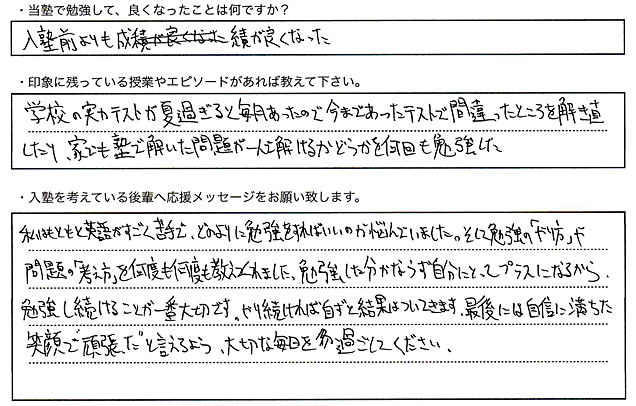 ・当塾で勉強して、良くなったことは何ですか？
入塾前よりも成績が良くなった績が良くなった
・印象に残っている授業やエピソードがあれば教えて下さい。
学校の実力テストが夏過ぎると毎月あったので今まであったテストで間違ったところを解き直
したり、家でも塾で解いた問題が一人で解けるかどうかを何回も勉強した
・入塾を考えている後輩へ応援メッセージをお願い致します。
私はもともと英語がすごく苦手で、どのように勉強をすればいいのか悩んでいました。そして勉強の「やり方」や
問題の「考え方」を何度も何度も教えてくれました。勉強した分かならず自分にとってプラスになるから、
勉強し続けることが一番大切です。やり続ければ自ずと結果はついてきます。最後には自信に満ちた
笑顔で"頑張った"と言えるよう、大切な毎日を過ごしてください。